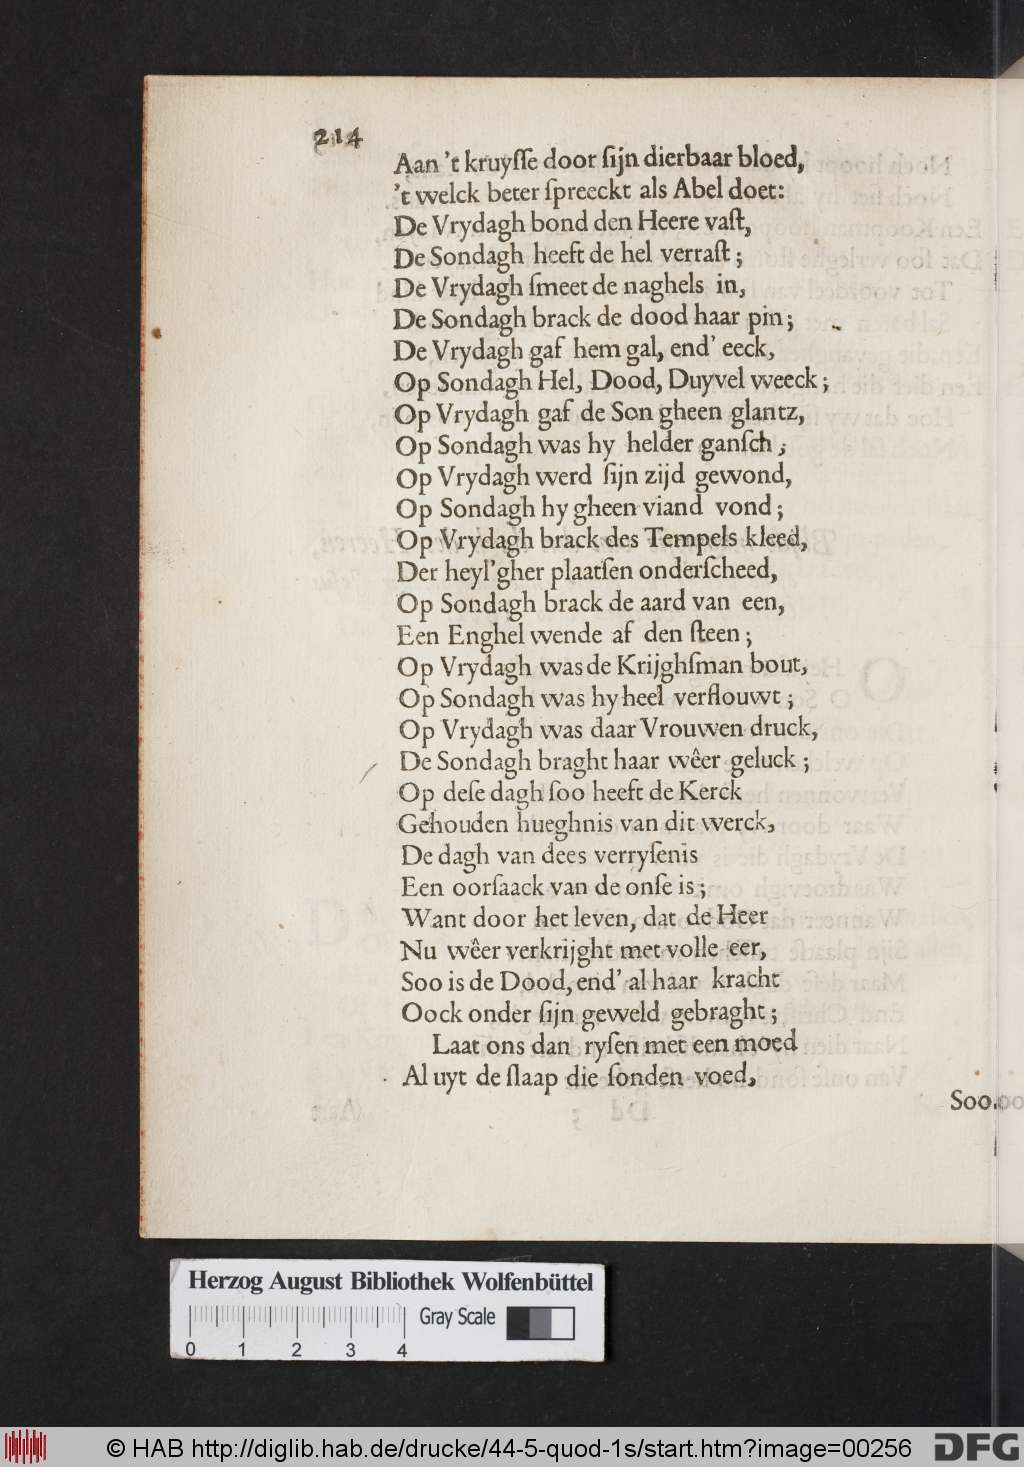 214
Aan 't kruyſſe door ſijn dierbaar bloed,
't welck beter ſpreeckt als Abel doet:
De Vrydagh bond den Heere vaſt,
De Sondagh heeft de hel verraſt ;
De Vrydagh ſmeet de naghels in,
De Sondagh brack de dood haar pin ;
De Vrydagh gaf hem gal, end' eeck,
Op Sondagh Hel, Dood, Duyvel weeck ;
Op Vrydagh gaf de Son gheen glantz,
Op Sondagh was hy helder ganſch ;
Op Vrydagh werd ſijn zijd gewond,
Op Sondagh hy gheen viand vond ;
Op Vrydagh brack des Tempels kleed,
Der heyl'gher plaatſen onderſcheed,
Op Sondagh brack de aard van een,
Een Enghel wende af den ſteen ;
Op Vrydagh was de Krijghſman bout,
Op Sondagh was hy heel verflouwt ;
Op Vrydagh was daar Vrouwen druck,
De Sondagh braght haar wêer geluck ;
Op deſe dagh ſoo heeft de Kerck
Gehouden hueghnis van dit werck,
De dagh van dees verryſenis
Een oorſaack van de onſe is ;
Want door het leven, dat de Heer
Nu wêer verkrijght met volle eer,
Soo is de Dood, end' al haar kracht
Oock onder ſijn geweld gebraght ;
Laat ons dan ryſen met een moed
Al uyt de ſlaap die ſonden voed,
Soo
Herzog August Bibliothek Wolfenbüttel
Gray Scale
0 1 2 3 4
© HAB http://diglib.hab.de/drucke/44-5-quod-1s/start.htm?image=00256
DFG